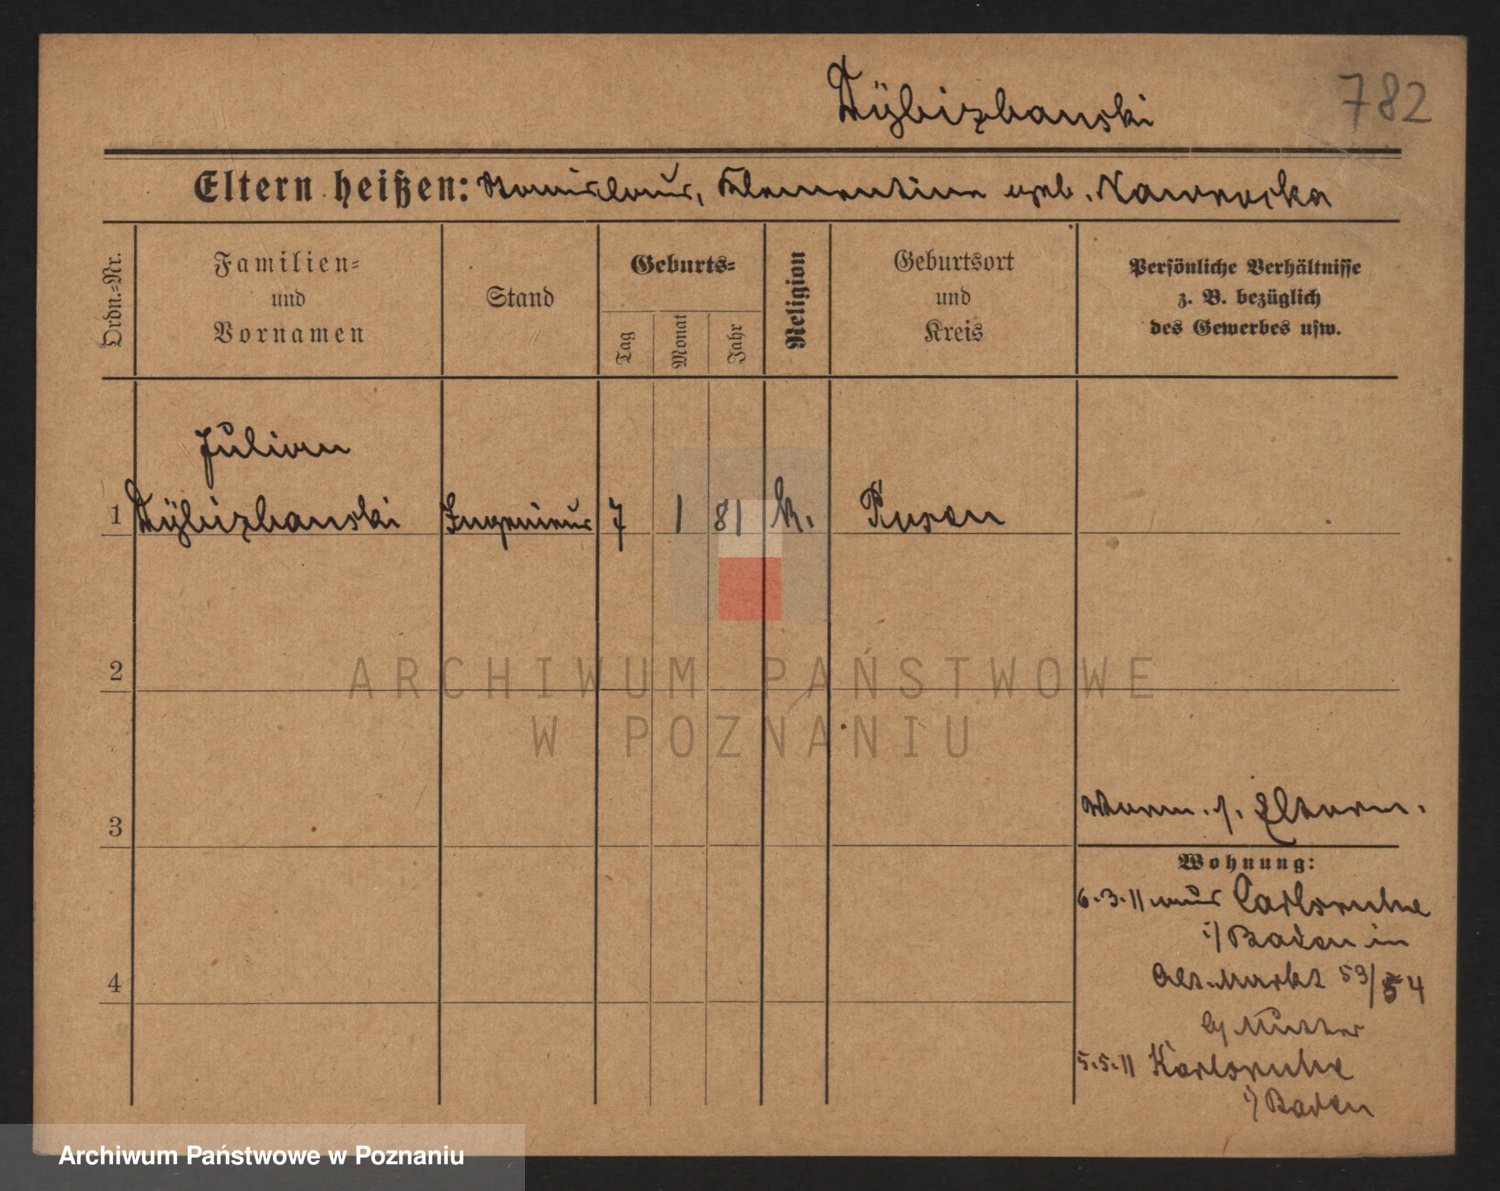 Dÿbizbanski
782
Eltern heißen: Stanislaus, Klementine geb. Nawrocka
Ordn.=Nr.
Familien=
und
Vornamen
Stand
Geburts=
Tag
Monat
Jahr
Religion
Geburtsort
und
Kreis
Persönliche Verhältnisse
z. B. bezüglich
des Gewerbes usw.
Julian
1 Dÿbizbanski Ingenieur 7 1 81 k. Posen
2
ARCHIWUM PAŃSTWOWE
W POZNANIU
3
Vorm. s. Eltern.
Wohnung:
6.3.11 aus Carlsruhe
i/ Baden in
4
Alt. Markt 53/54
b/ Mutter
5.5.11 Karlsruhe
i/ Baden
Archiwum Państwowe w Poznaniu